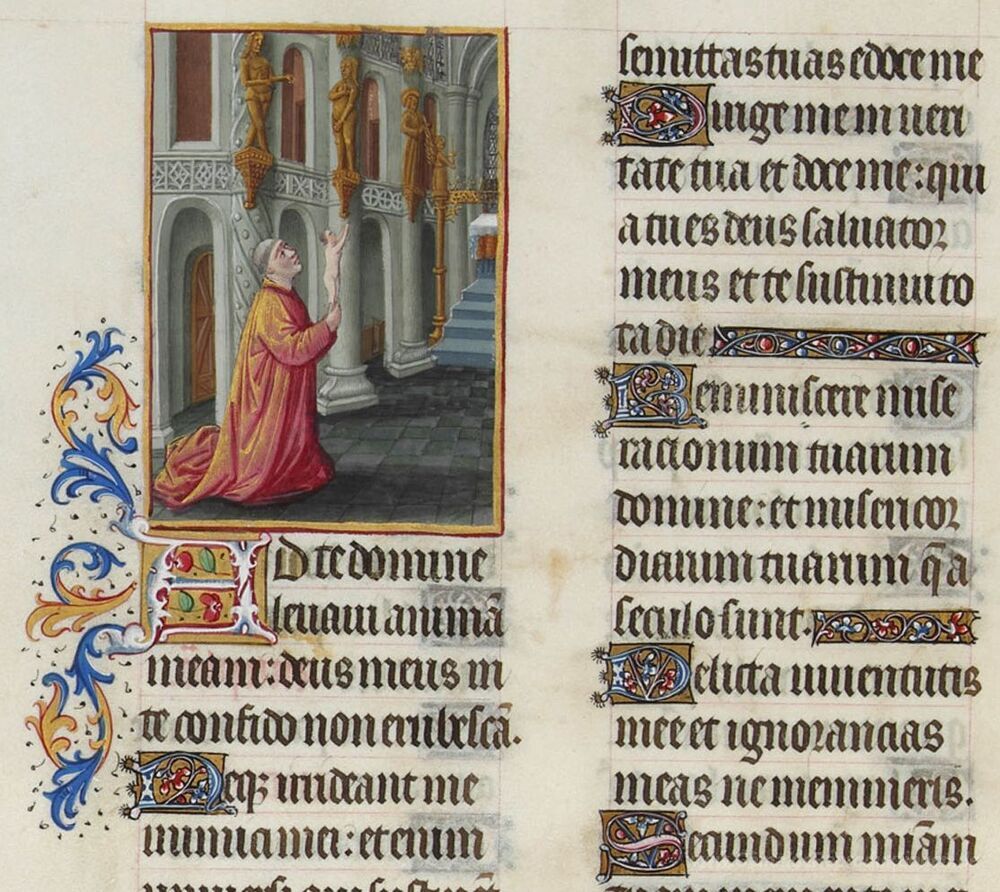 AD te domine
levavi animā
meam: deus meus in
te confido non erubescā.
Neqꝫ irrideant me
inimici mei: etenim
universi qui sustinēt
semittas tuas edoce me
Dirige me in veri
tate tua et doce me: qui
a tu es deus salvator
meus et te sustinui to
ta die.
Reminiscere mise
racionum tuarum
domine: et misericor
diarum tuarum q̄ a
seculo sunt.
Delicta iuventutis
mee et ignorancias
meas ne memineris.
Secundum miā̄m